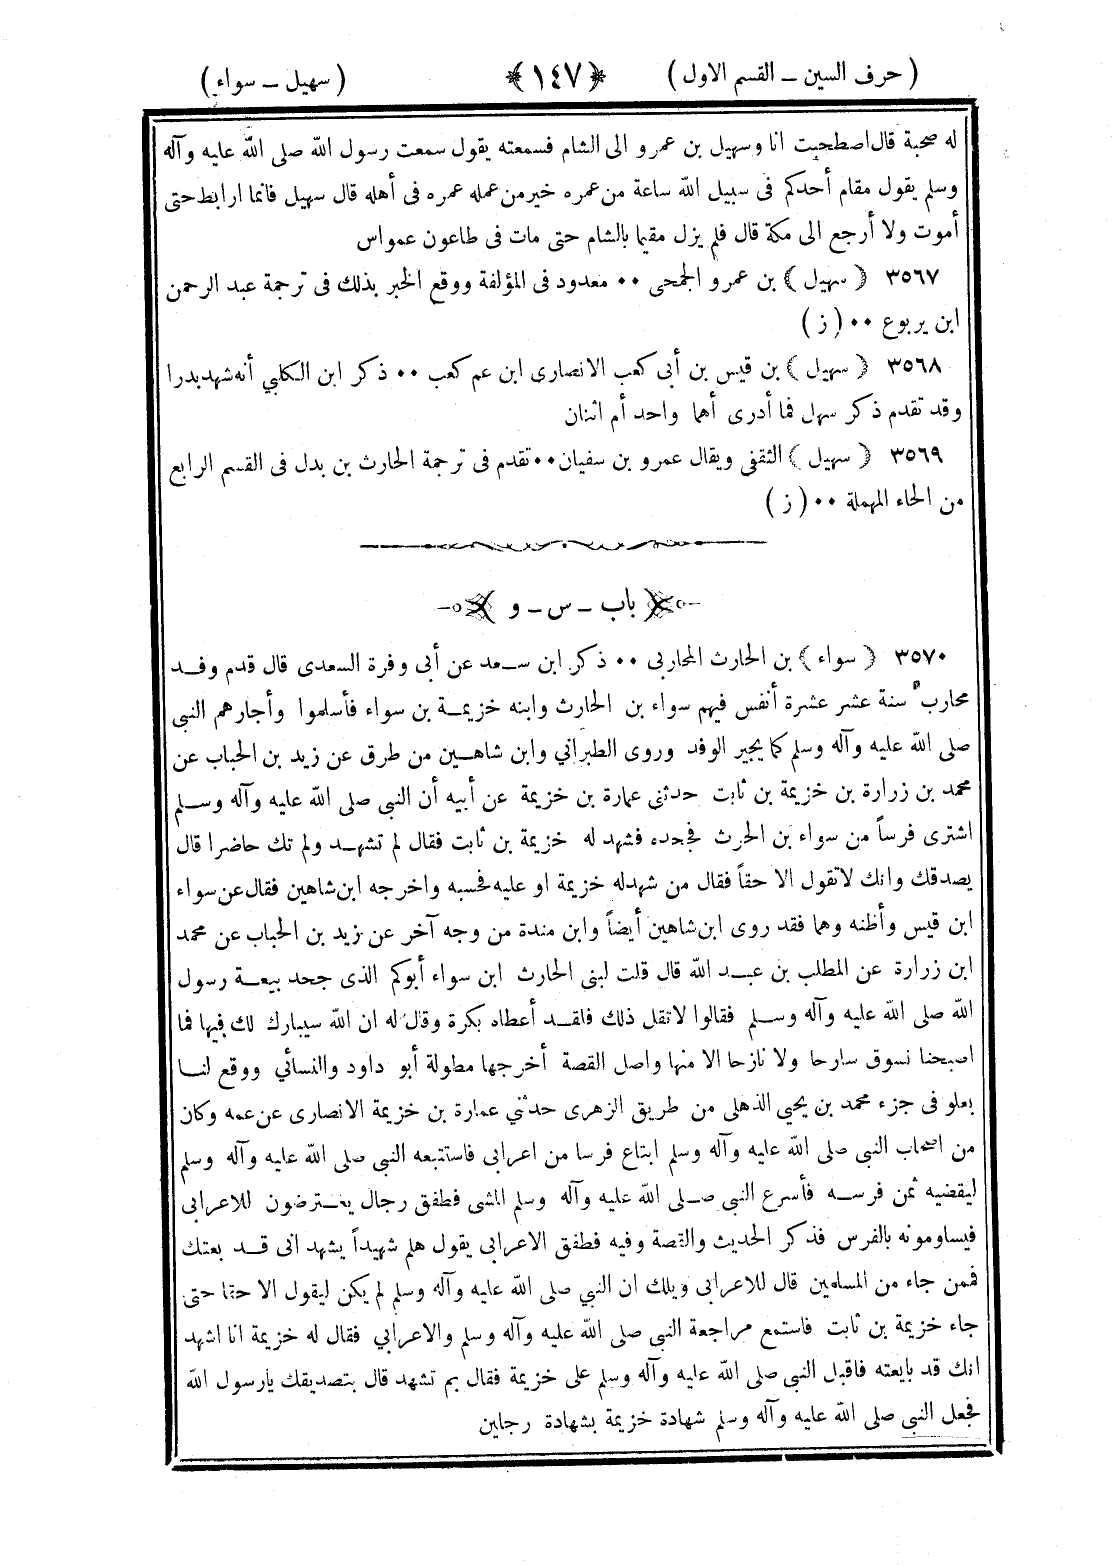 ( حرف السين ــ القسم الاول )
﴿ ١٤٧ ﴾
( سهيل ــ سواء )
له صحبة قال اصطحبت انا وسهيل بن عمرو الى الشام فسمعته يقول سمعت رسول الله صلى الله عليه وآله
وسلم يقول مقام أحدكم فى سبيل الله ساعة من عمره خير من عمله عمره فى أهله قال سهيل فانما ارابط حتى
أموت ولا أرجع الى مكة قال فلم يزل مقيما بالشام حتى مات فى طاعون عمواس
٣٥٦٧ ﴿ سهيل ﴾ بن عمرو الجمحى ٠٠ معدود فى المؤلفة ووقع الخبر بذلك فى ترجمة عبد الرحمن
ابن يربوع ٠٠ ( ز )
٣٥٦٨ ﴿ سهيل ﴾ بن قيس بن أبى كعب الانصارى ابن عم كعب ٠٠ ذكر ابن الكلبي أنه شهد بدرا
وقد تقدم ذكر سهل فما أدرى أهما واحد أم اثنان
٣٥٦٩ ﴿ سهيل ﴾ الثقفى ويقال عمرو بن سفيان ٠٠ تقدم فى ترجمة الحارث بن بدل فى القسم الرابع
من الحاء المهملة ٠٠ ( ز )
باب ــ س ــ و
٣٥٧٠ ﴿ سواء ﴾ بن الحارث المحاربي ٠٠ ذكر ابن سعد عن أبى وفرة السعدى قال قدم وفد
محارب سنة عشر عشرة أنفس فيهم سواء بن الحارث وابنه خزيمة بن سواء فأسلموا وأجارهم النبي
صلى الله عليه وآله وسلم كما يجير الوفد وروى الطبراني وابن شاهين من طرق عن زيد بن الحباب عن
محمد بن زرارة بن خزيمة بن ثابت حدثنى عمارة بن خزيمة عن أبيه أن النبي صلى الله عليه وآله وسلم
اشترى فرساً من سواء بن الحرث فجحده فشهد له خزيمة بن ثابت فقال لم تشهد ولم تك حاضرا قال
بصدقك وانك لا تقول الا حقاً فقال من شهد له خزيمة او عليه فحسبه واخرجه ابن شاهين فقال عن سواء
ابن قيس وأظنه وهما فقد روى ابن شاهين أيضاً وابن مندة من وجه آخر عن زيد بن الحباب عن محمد
ابن زرارة عن المطلب بن عبد الله قال قلت لبنى الحارث ابن سواء أبوكم الذى جحد بيعة رسول
الله صلى الله عليه وآله وسلم فقالوا لا تقل ذلك فلقد أعطاه بكرة وقال له ان الله سيبارك لك فيها فما
اصبحنا نسوق سارحا ولا نازحا الا منها واصل القصة أخرجها مطولة أبو داود والنسائي ووقع لنا
بعلو فى جزء محمد بن يحيي الذهلى من طريق الزهرى حدثني عمارة بن خزيمة الانصارى عن عمه وكان
من اصحاب النبي صلى الله عليه وآله وسلم ابتاع فرسا من اعرابى فاستتبعه النبي صلى الله عليه وآله وسلم
ليقضيه ثمن فرسه فأسرع النبى صلى الله عليه وآله وسلم المشى فطفق رجال يعترضون للاعرابى
فيساومونه بالفرس فذكر الحديث والقصة وفيه فطفق الاعرابى يقول هلم شهيداً يشهد انى قد بعتك
فمن جاء من المسلمين قال للاعرابى ويلك ان النبي صلى الله عليه وآله وسلم لم يكن ليقول الا حقا حتى
جاء خزيمة بن ثابت فاستمع مراجعة النبى صلى الله عليه وآله وسلم والاعرابي فقال له خزيمة انا اشهد
انك قد بايعته فاقبل النبى صلى الله عليه وآله وسلم على خزيمة فقال بم تشهد قال بتصديقك يارسول الله
فجعل النبى صلى الله عليه وآله وسلم شهادة خزيمة بشهادة رجلين